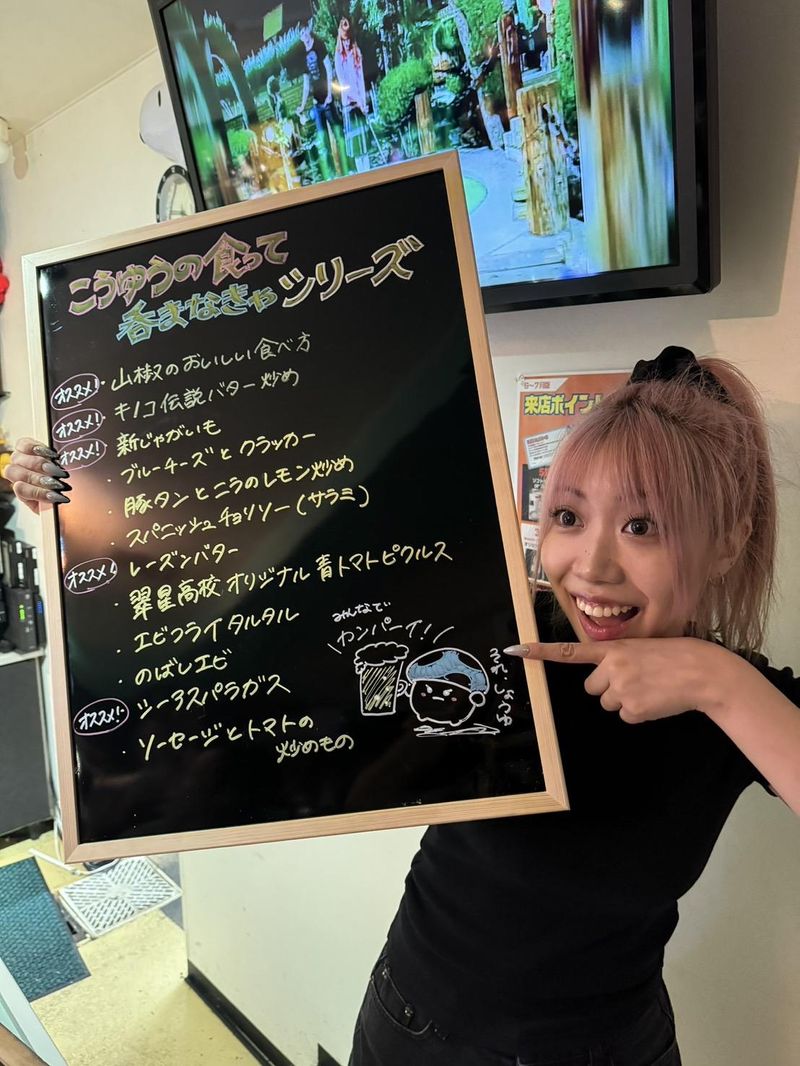 こうゆうの食って
呑まなきゃシリーズ
オススメ!・山椒のおいしい食べ方
オススメ!・キノコ伝説バター炒め
オススメ!・新じゃがいも
・ブルーチーズとクラッカー
・豚タンとニラのレモン炒め
・スパニッシュチョリソー(サラミ)
オススメ!・レーズンバター
・翠星高校オリジナル青トマトピクルス
・エビフライタルタル
・のばしエビ
オススメ!・シーアスパラガス
・ソーセージとトマトの
炒めもの
みんなで
\カンパーイ!/
6〜7月
来店ポイント